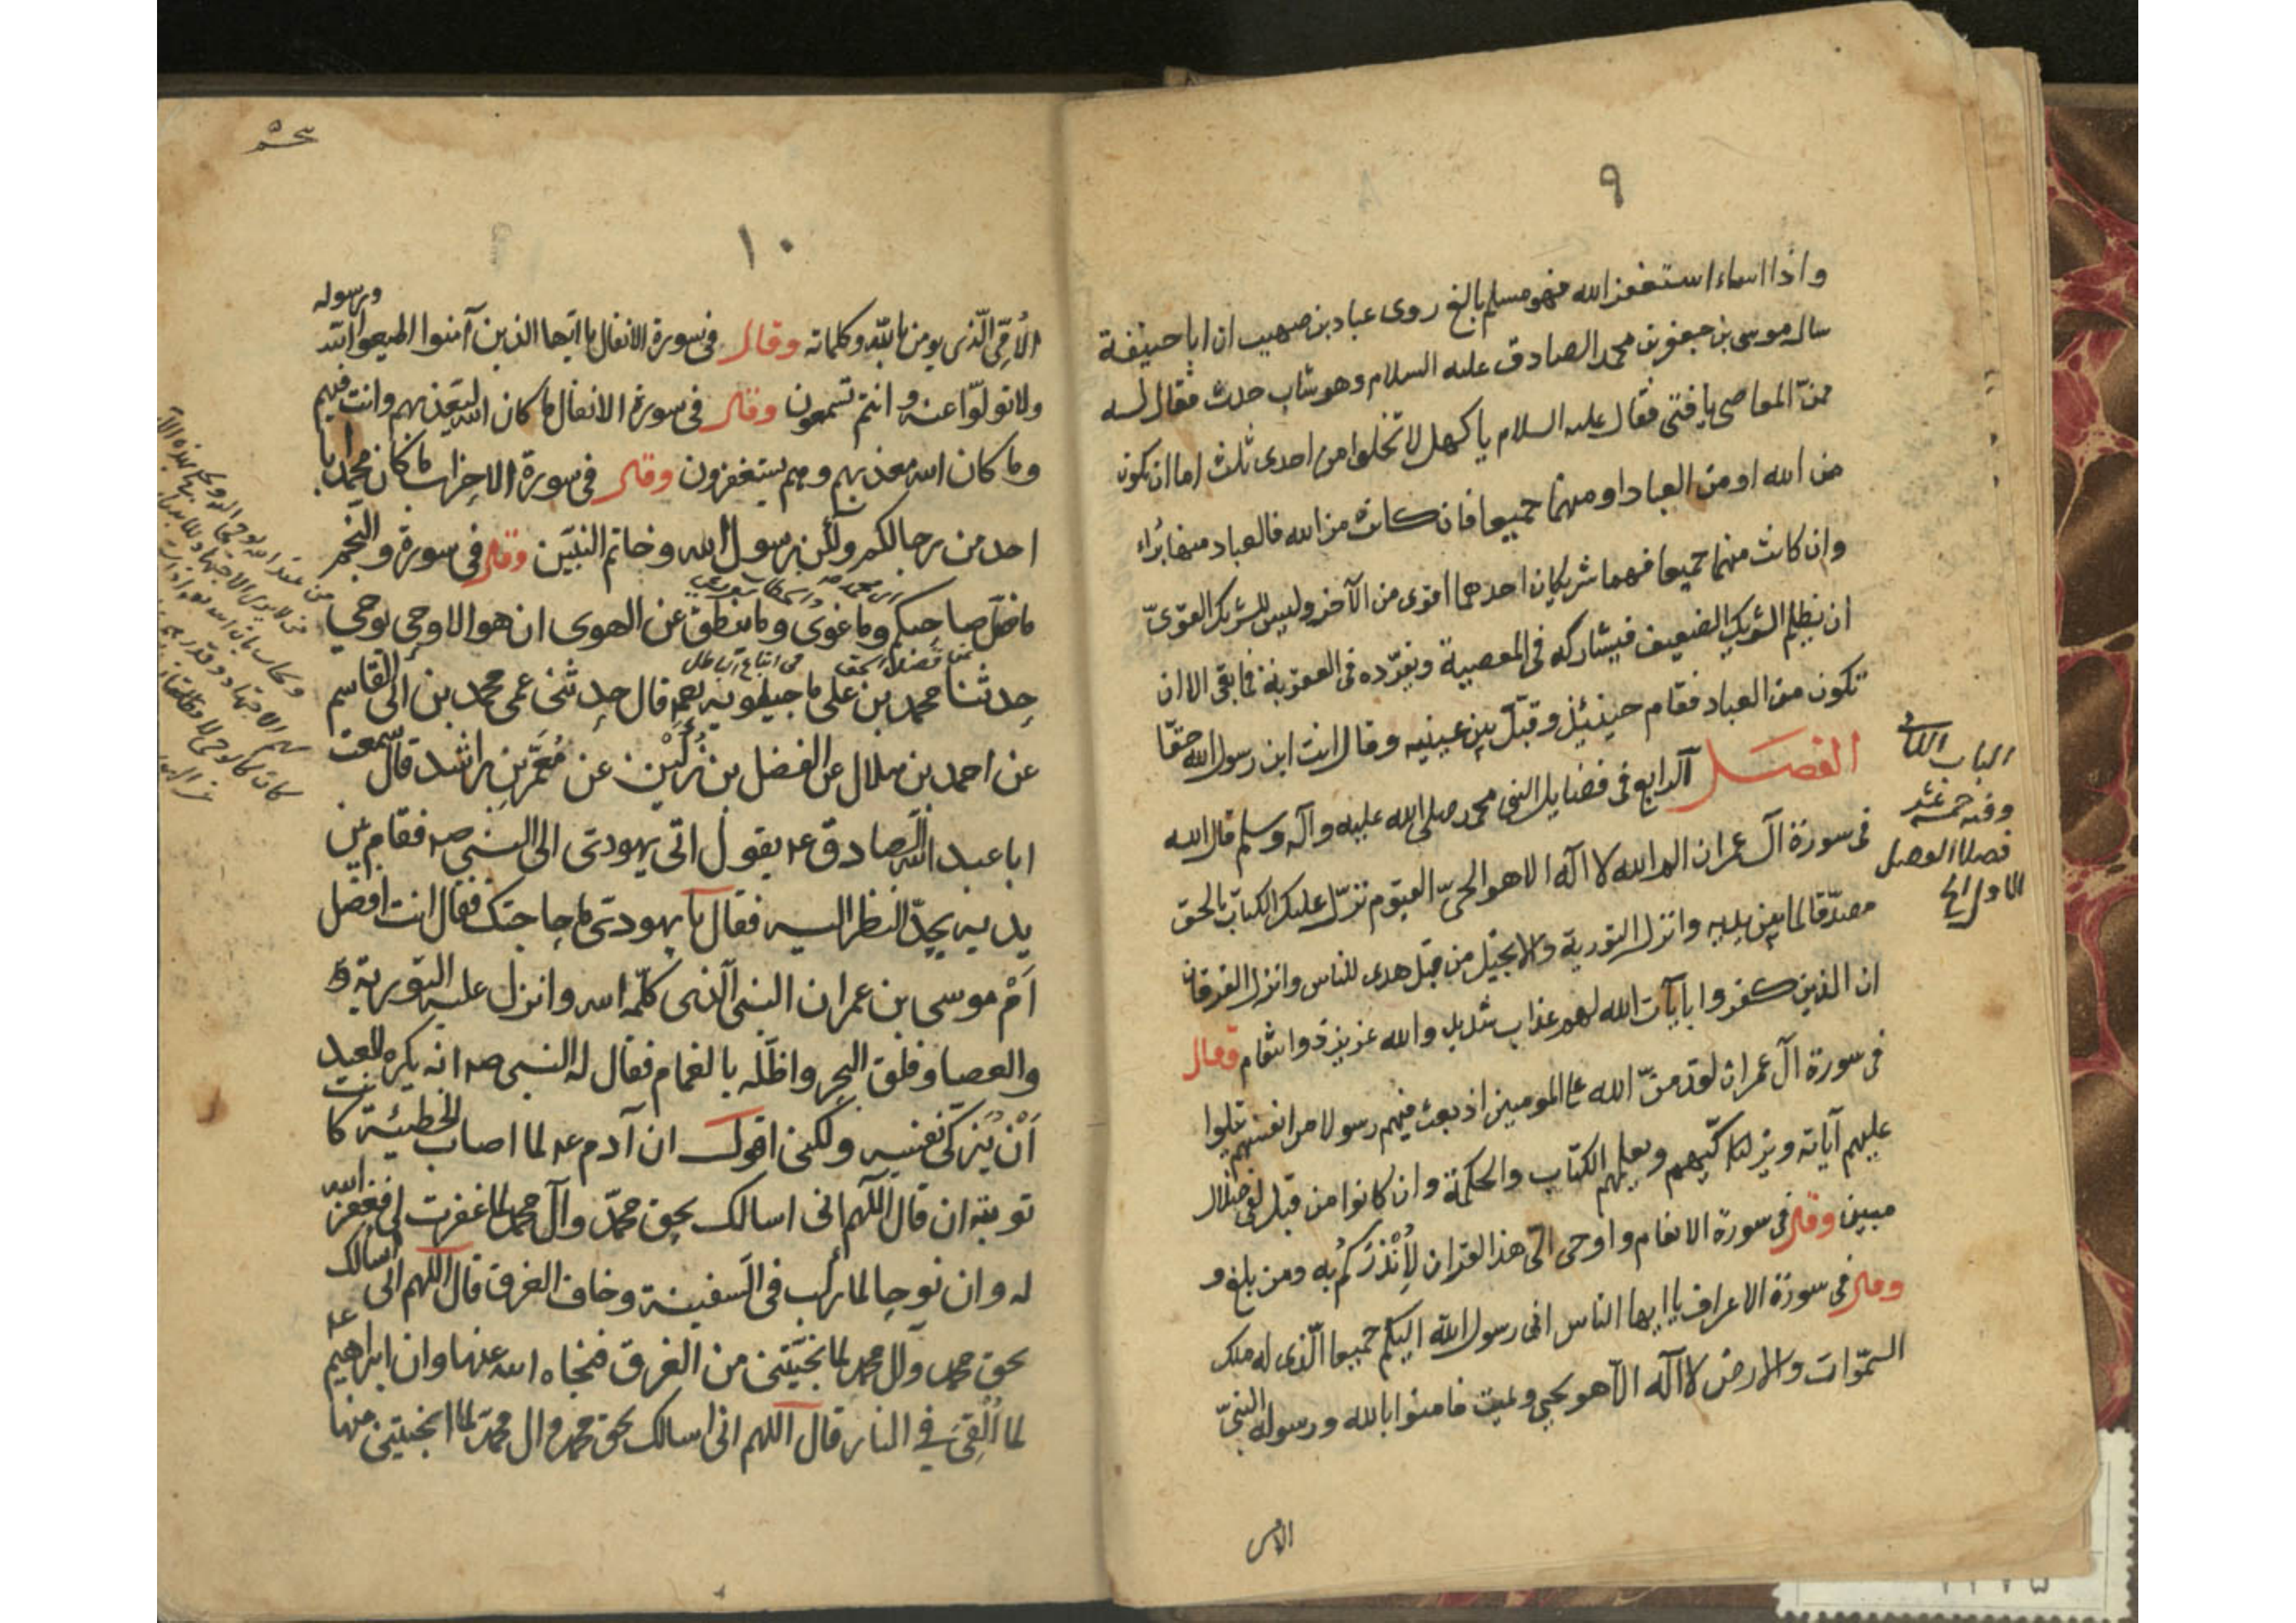 ٩
واذا اساء استغفر الله فهو مسلم بالغ روى عباد بن صهيب ان ابا حنيفة
سال موسى بن جعفر بن محمد الصادق عليه السلام وهو شاب حدث فقال له
ممّن المعاصى يا فتى فقال عليه السلام يا كهل لا تخلوا من احدى ثلث اما ان تكون
من الله او من العباد او منهما جميعا فان كانت من الله فالعباد منها بُراء
وان كانت منهما جميعا فهما شريكان احدهما اقوى من الآخر وليس للشريك القوىّ
ان يظلم الشريك الضعيف فيشاركه فى المعصية ويفرّده فى العقوبة فما بقى الا ان
تكون من العباد فقام حينئذ وقبّل بين عينيه وقال انت ابن رسول الله حقّا
الفصل الرابع فى فضايل النبى محمد صلى الله عليه وآله وسلم قال الله
فى سورة آل عمران الم الله لا آله الا هو الحىّ القيوم نزّل عليك الكتاب بالحق
مصدّقا لما بين يديه وانزل التورية والانجيل من قبل هدى للناس وانزل الفرقان
ان الذين كفروا بآيات الله لهم عذاب شديد والله عزيز ذو انتقام وقال
فى سورة آل عمران لقد منّ الله على المومنين اذ بعث فيهم رسولا من انفسهم يتلوا
عليهم آياته ويزكّيهم ويعلمهم الكتاب والحكمة وان كانوا من قبل لفى ضلال
مبين وقال فى سورة الانعام واوحى الىّ هذا القران لِأُنْذِرَكُم به ومن بلغ و
وقال فى سورة الاعراف يا ايها الناس انى رسول الله اليكم جميعا الّذى له ملك
السمّوات والارض لا آله الّا هو يحيى ويميت فامنوا بالله ورسوله النبىّ
الامى
الباب الثانى
وفيه خمسة عشر
فصلا الفصل
الاول فى
١٠
الاُمّى الّذى يومن بالله وكلماته وقال فى سورة الانفال يا ايّها الذين آمنوا اطيعوا الله ورسوله
ولا تولّوا عنه وانتم تسمعون وقال فى سورة الانفال ما كان الله ليعذبهم وانت فيهم
وما كان الله معذبهم وهم يستغفرون وقال فى سورة الاحزاب ما كان محمد ابا
احد من رجالكم ولكن رسول الله وخاتم النبيّين وقال فى سورة والنجم
ما ضلّ صاحبكم وما غوى وما ينطق عن الهوى ان هو الا وحى يوحى
حدثنا محمد بن على ماجيلويه قال حدثنى عمى محمد بن ابى القاسم
عن احمد بن هلال عن الفضل بن دُكَيْن عن مُعَمَّر بن راشد قال سمعت
ابا عبد الله الصادق عه يقول اتى يهودى الى النبى صه فقام بين
يديه يحدّ النظر اليه فقال يا يهودى ما حاجتك فقال انت افضل
اَمْ موسى بن عمران النبى الّذى كلّمه الله وانزل عليه التورية
والعصا وفلق البحر واظلّه بالغمام فقال له النبى صه انه يكره للعبد
اَنْ يُزَكى نفسه ولكنى اقول ان آدم عه لما اصاب الخطيئة كانت
توبته ان قال اللّهم انى اسالك بحق محمّد وآل محمد لما غفرت لى فغفر الله
له وان نوحا لما ركب فى السفينة وخاف الغرق قال اللهم انى اسالك
بحق محمد وآل محمد لما نجّيتنى من الغرق فنجاه الله عنها وان ابراهيم عه
لما اُلْقِىَ فى النار قال اللهم انى اسالك بحق محمد وال محمّد لما انجيتنى منها